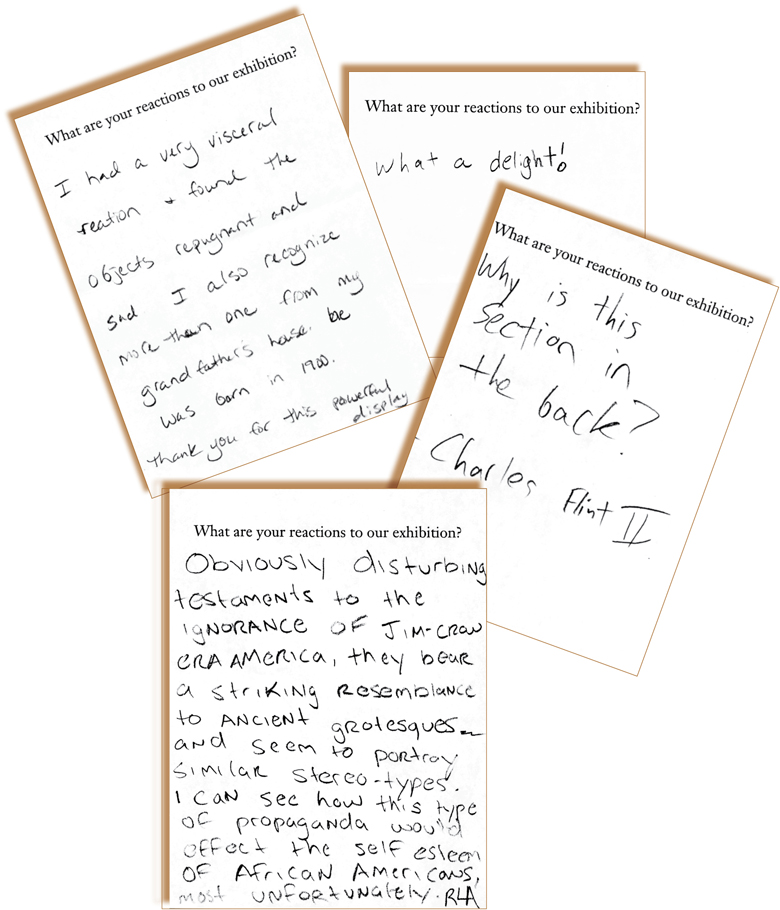 What are your reactions to our exhibition?
I had a very visceral
reation + found the
objects repugnant and
sad I also recognize
more than one from my
grandfather's house. he
was born in 1900.
thank you for this powerful
display
What are your reactions to our exhibition?
What a delight!
What are your reactions to our exhibition?
Why is this
section in
the back?
Charles Flint II
What are your reactions to our exhibition?
Obviously disturbing
testaments to the
ignorance of Jim-Crow
era America, they bear
a striking resemblance
to ancient grotesques
and seem to portray
similar stereo-types.
I can see how this type
of propaganda would
effect the self esteem
of African Americans,
most unfortunately. RLA